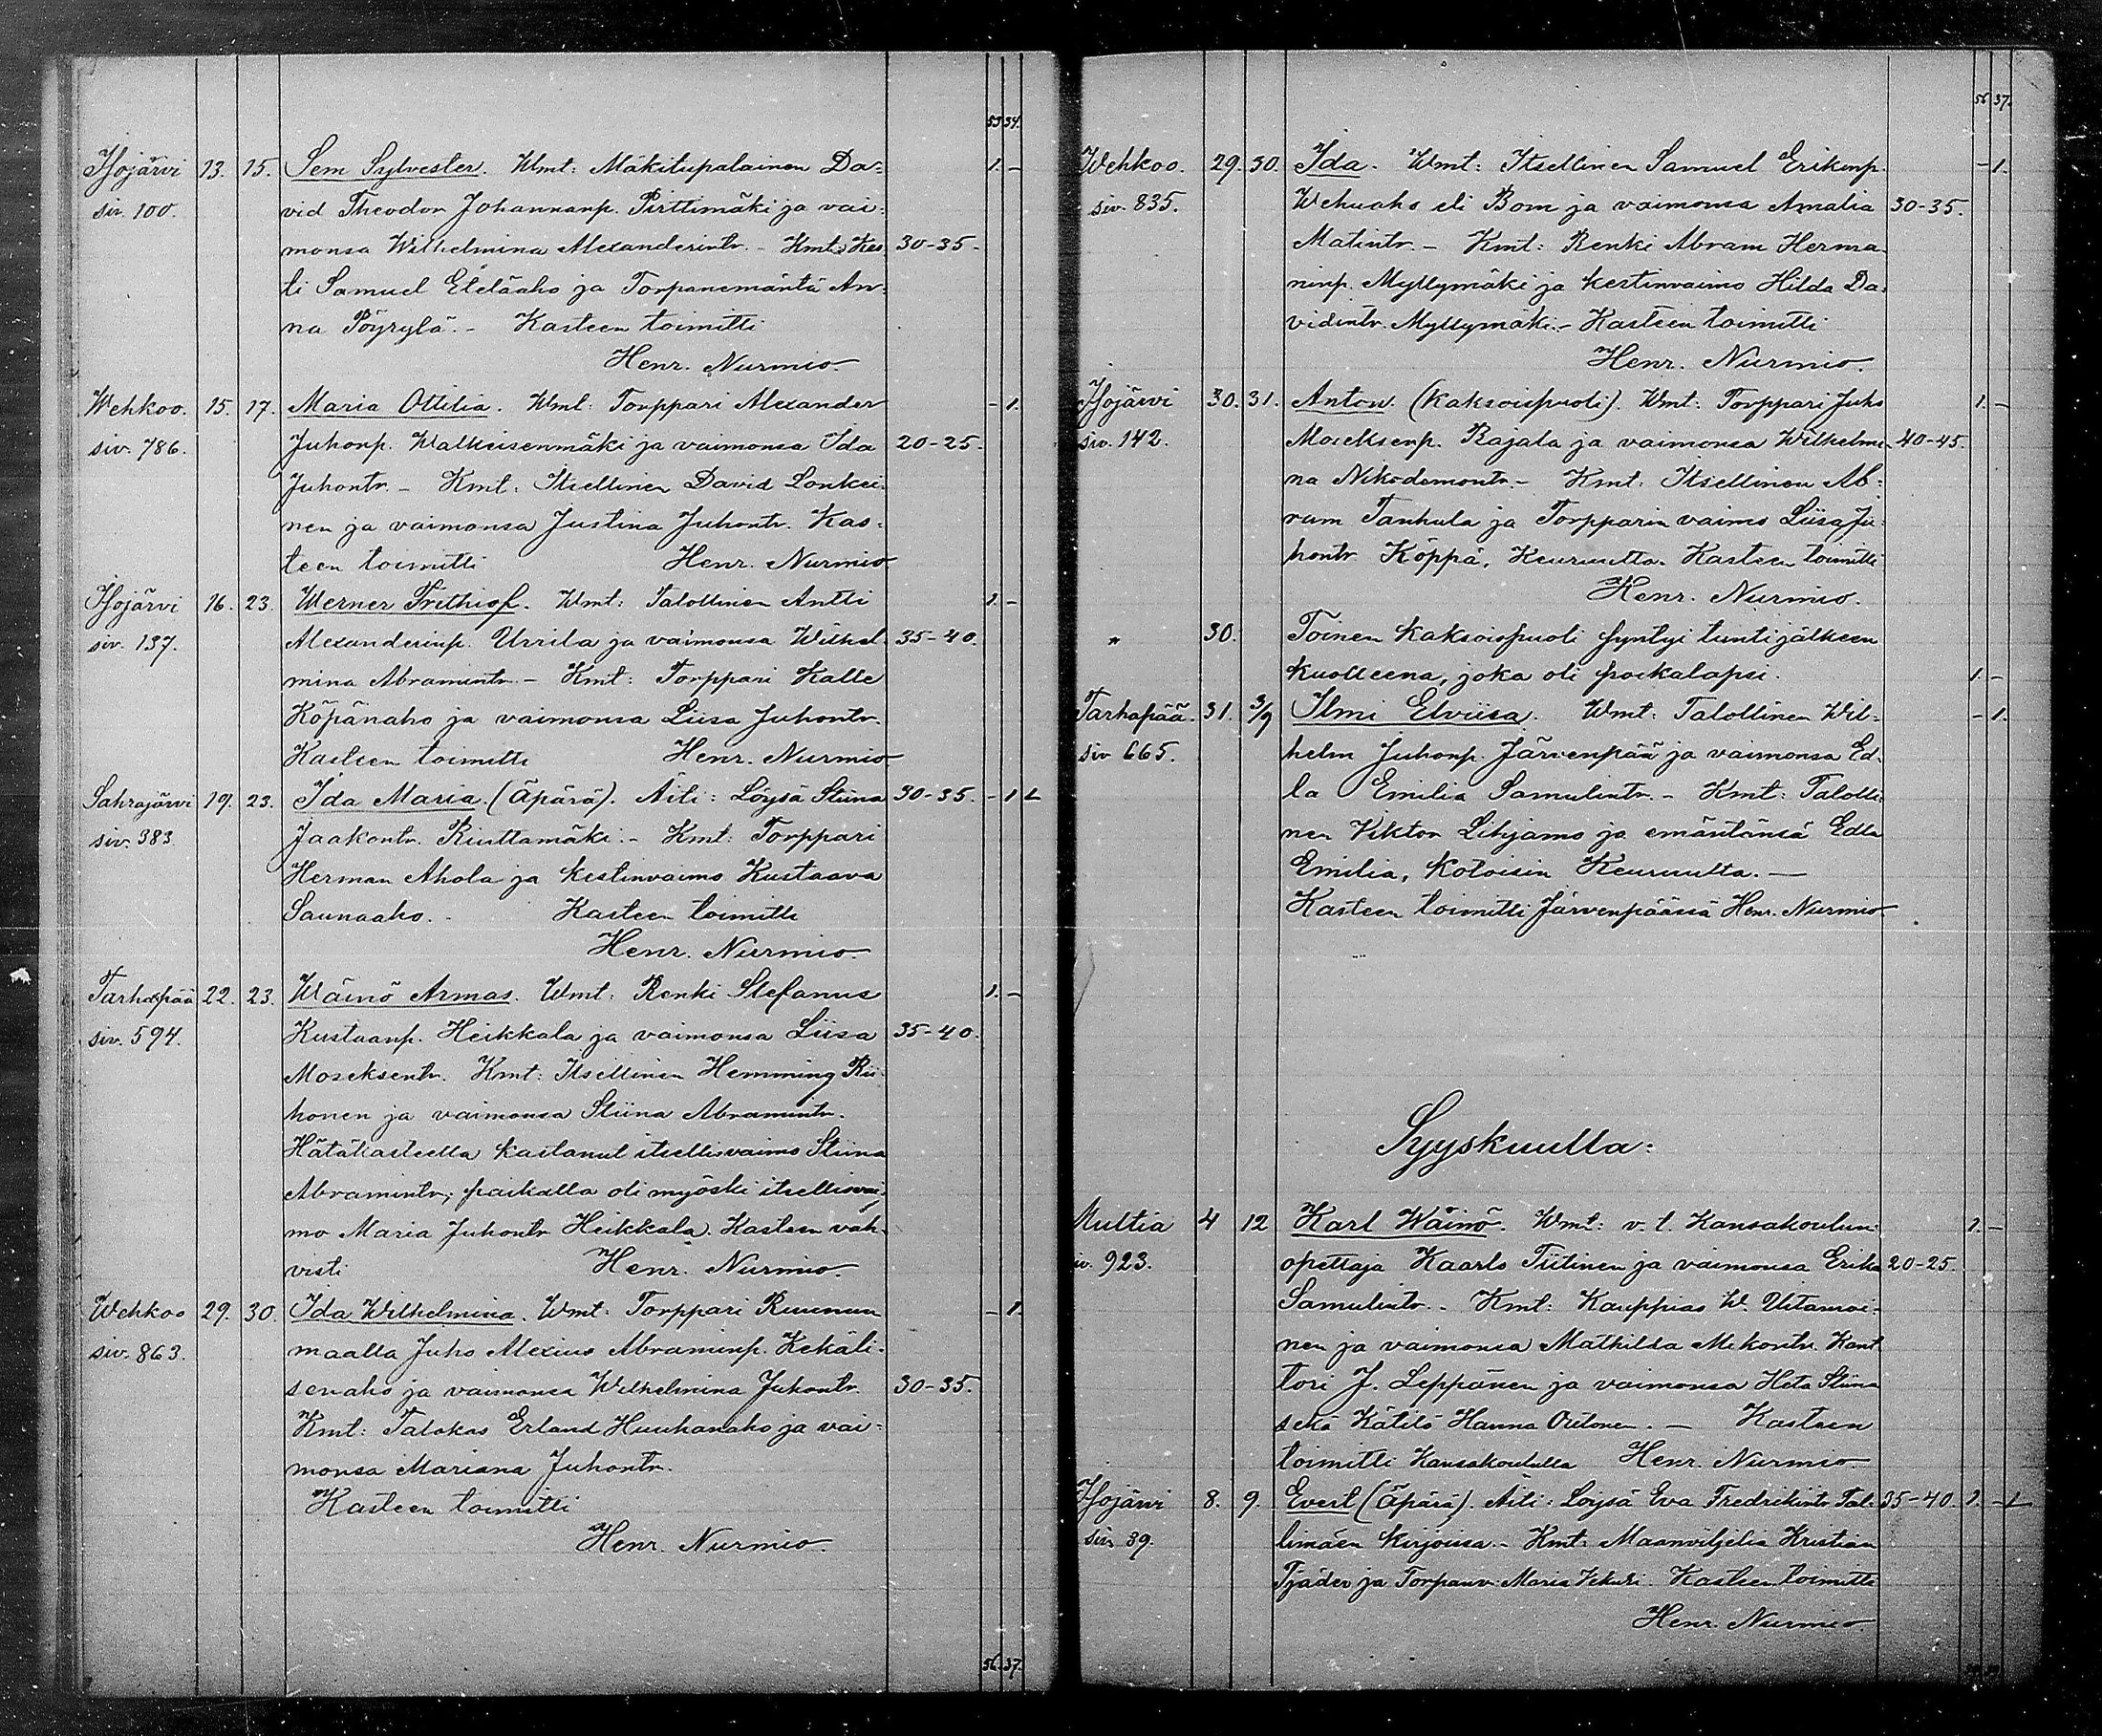 53 34.
Isojärvi 13. 15. Sem Sylvester. Wmt: Mäkitupalainen Da= 1. –
siv. 100. vid Theodor Johannanp. Pirttimäki ja vai=
monsa Wilhelmina Alexanderintr. – Kmt: Kes 30-35.
ti Samuel Eteläaho ja Torpanemäntä An=
na Pöyrylä. – Kasteen toimitti
Henr. Nurmio.
Wehkoo. 15. 17. Maria Ottilia. Wmt: Torppari Alexander – 1.
siv. 786. Juhonp. Walkeisenmäki ja vaimonsa Ida 20-25.
Juhontr. – Kmt: Itsellinen David Lonkei=
nen ja vaimonsa Justina Juhontr. Kas=
teen toimitti Henr. Nurmio
Isojärvi 16. 23. Werner Frithiof. Wmt: Talollinen Antti 1. –
siv. 137. Alexanderinp. Urrila ja vaimonsa Wilhel= 35-40.
mina Abramintr. – Kmt: Torppari Kalle
Köpänaho ja vaimonsa Liisa Juhontr.
Kasteen toimitti Henr. Nurmio
Sahrajärvi 19. 23. Ida Maria. (Äpärä). Äiti: Löysä Stiina 30-35. – 1 1
siv. 383 Jaakontr. Riuttamäki. – Kmt: Torppari
Herman Ahola ja kestinvaimo Kustaava
Saunaaho. – Kasteen toimitti
Henr. Nurmio.
Tarhapää 22. 23. Wäinö Armas. Wmt: Renki Stefanus 1. –
siv. 594. Kustaanp. Heikkala ja vaimonsa Liisa 35-40.
Moseksentr. Kmt: Itsellinen Hemming Rii=
honen ja vaimonsa Stiina Abramintr.
Hätäkasteella kastanut itsellisvaimo Stiina
Abramintr; paikalla oli myöski itsellisvai=
mo Maria Juhontr Heikkala. Kasteen vah=
visti Henr. Nurmio.
Wehkoo 29. 30. Ida Wilhelmina. Wmt: Torppari Ruunun – 1.
siv. 863. maalla Juho Alexius Abraminp. Kekäli=
senaho ja vaimonsa Wilhelmina Juhontr. 30-35.
Kmt: Talokas Erland Huuhanaho ja vai=
monsa Mariana Juhontr.
Kasteen toimitti
Henr. Nurmio.
56. 37.
56 37.
Wehkoo. 29. 30. Ida. Wmt: Itsellinen Samuel Erikinp. – 1.
siv. 835. Wehuaho eli Bom ja vaimonsa Amalia 30-35.
Matintr. – Kmt: Renki Abram Herma=
ninp. Myllymäki ja kestinvaimo Hilda Da=
vidintr. Myllymäki. – Kasteen toimitti
Henr. Nurmio.
Isojärvi 30. 31. Anton. (Kaksoispuoli). Wmt: Torppari Juho 1. –
siv. 142. Moseksenp. Rajala ja vaimonsa Wilhelmi= 40-45.
na Nikodemontr. – Kmt: Itsellinen Ab=
ram Tanhula ja Torpparin vaimo Liisa Ju=
hontr Köppä, Keuruulta. Kasteen toimitti
Henr. Nurmio.
" 30. Toinen Kaksoispuoli syntyi tunti jälkeen
kuolleena, joka oli poikalapsi. 1. –
Tarhapää. 31. 3/9 Ilmi Elviisa. Wmt: Talollinen Wil= – 1.
siv 665. helm Juhonp. Järvenpää ja vaimonsa Ed=
la Emilia Samulintr. – Kmt: Talolli=
nen Viktor Lihjamo ja emäntänsä Edla
Emilia, kotoisin Keuruulta. —
Kasteen toimitti Järvenpäässä Henr. Nurmio.
Syyskuulla:
Multia 4 12 Karl Wäinö. Wmt: v. t. Kansakoulun= 1. –
siv. 923. opettaja Kaarlo Tiitinen ja vaimonsa Erika 20-25.
Samulintr. – Kmt: Kauppias W. Uitamoi=
nen ja vaimonsa Mathilda Mikontr. Kant
tori J. Leppänen ja vaimonsa Heta Stiina
sekä Kätilö Hanna Outonen. — Kasteen
toimitti Kansakoululla Henr. Nurmio
Isojärvi 8. 9. Evert (Äpärä). Äiti: Löysä Eva Fredrikintr Tal= 35-40 1. – 1
siv 39. limäen kirjoissa. – Kmt: Maanviljeliä Kristian
Tjäder ja Torpanv: Maria Kekuri. Kasteen toimitti
Henr. Nurmio